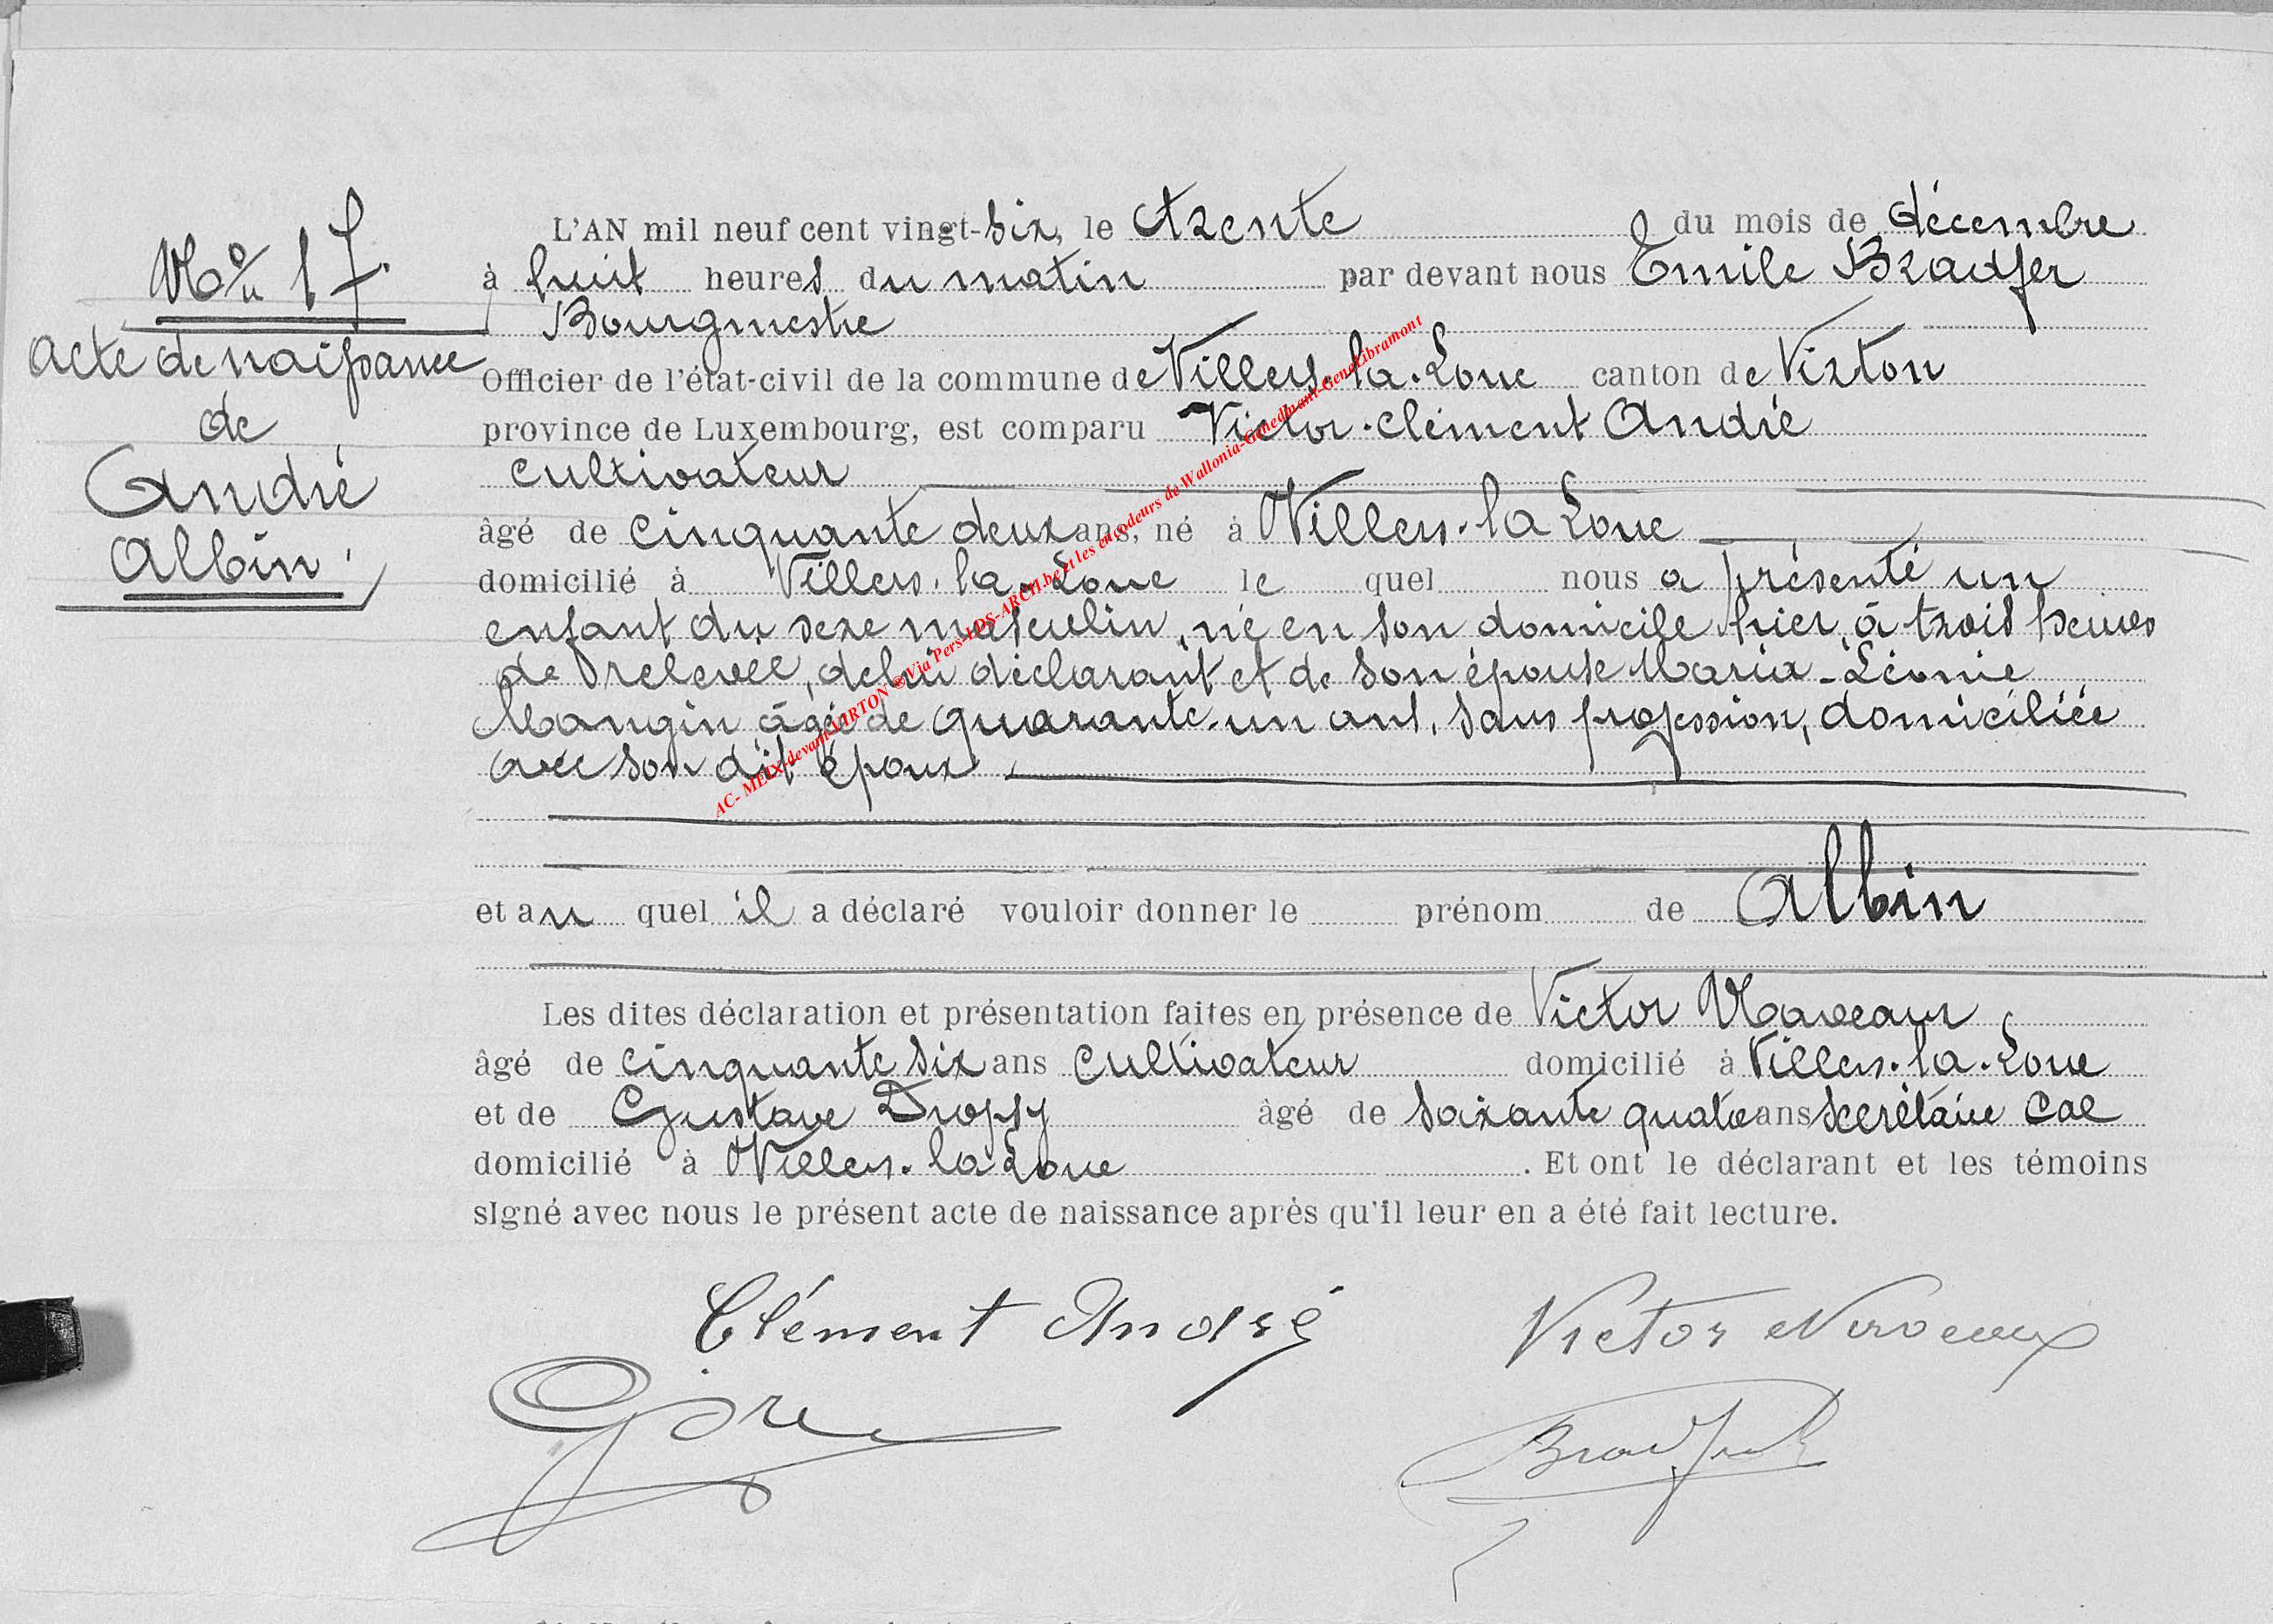 No 17.
Acte de naissance
de
André
Albin
L'AN mil neuf cent vingt-six, le trente du mois de décembre
à huit heures du matin par devant nous Emile Bradfer
Bourgmestre
Officier de l'état-civil de la commune de Villers-la-Loue canton de Virton
province de Luxembourg, est comparu Victor-Clément André
cultivateur
âgé de cinquante deux ans, né à Villers-la Loue
domicilié à Villers-la-Loue le quel nous a présenté un
enfant du sexe masculin, né en son domicile hier, à trois heures
de relevée, de lui déclarant et de son épouse Maria-Léonie
Mangin âgée de quarante-un ans, sans profession, domiciliée
avec son dit époux
et au quel il a déclaré vouloir donner le prénom de Albin
Les dites déclaration et présentation faites en présence de Victor
âgé de cinquante six ans cultivateur domicilié à Villers-la-Loue
et de Gustave Dropsy âgé de soixante quatre ans secrétaire Cal
domicilié à Villers-la Loue. Et ont le déclarant et les témoins
signé avec nous le présent acte de naissance après qu'il leur en a été fait lecture.
Clément André Victor
Bradfer
AC- MEIX-devant-VIRTON ® Via Pers-LDS-ARCH.be et les encodeurs de Wallonia-Genedinant-GeneLibramont